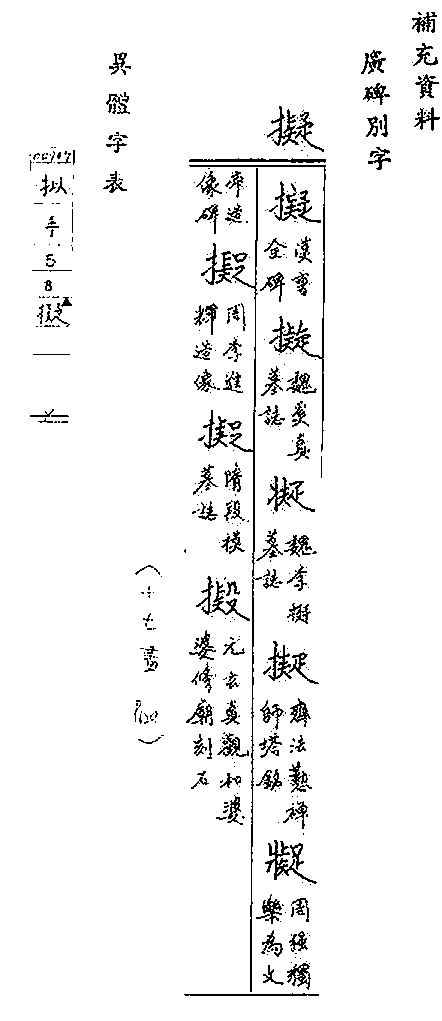 補充資料
廣碑別字
擬
擬
漢曹全碑
擬
魏爰真墓誌
擬
魏李挺墓誌
擬
齊法懃禪師塔銘
擬
周強獨樂為文
帝造像碑
擬
周李進輝造像
擬
隋段模墓誌
擬
元玄真觀和婆婆修廟刻石
（十七畫
異體字表
拟
手
5
8
擬